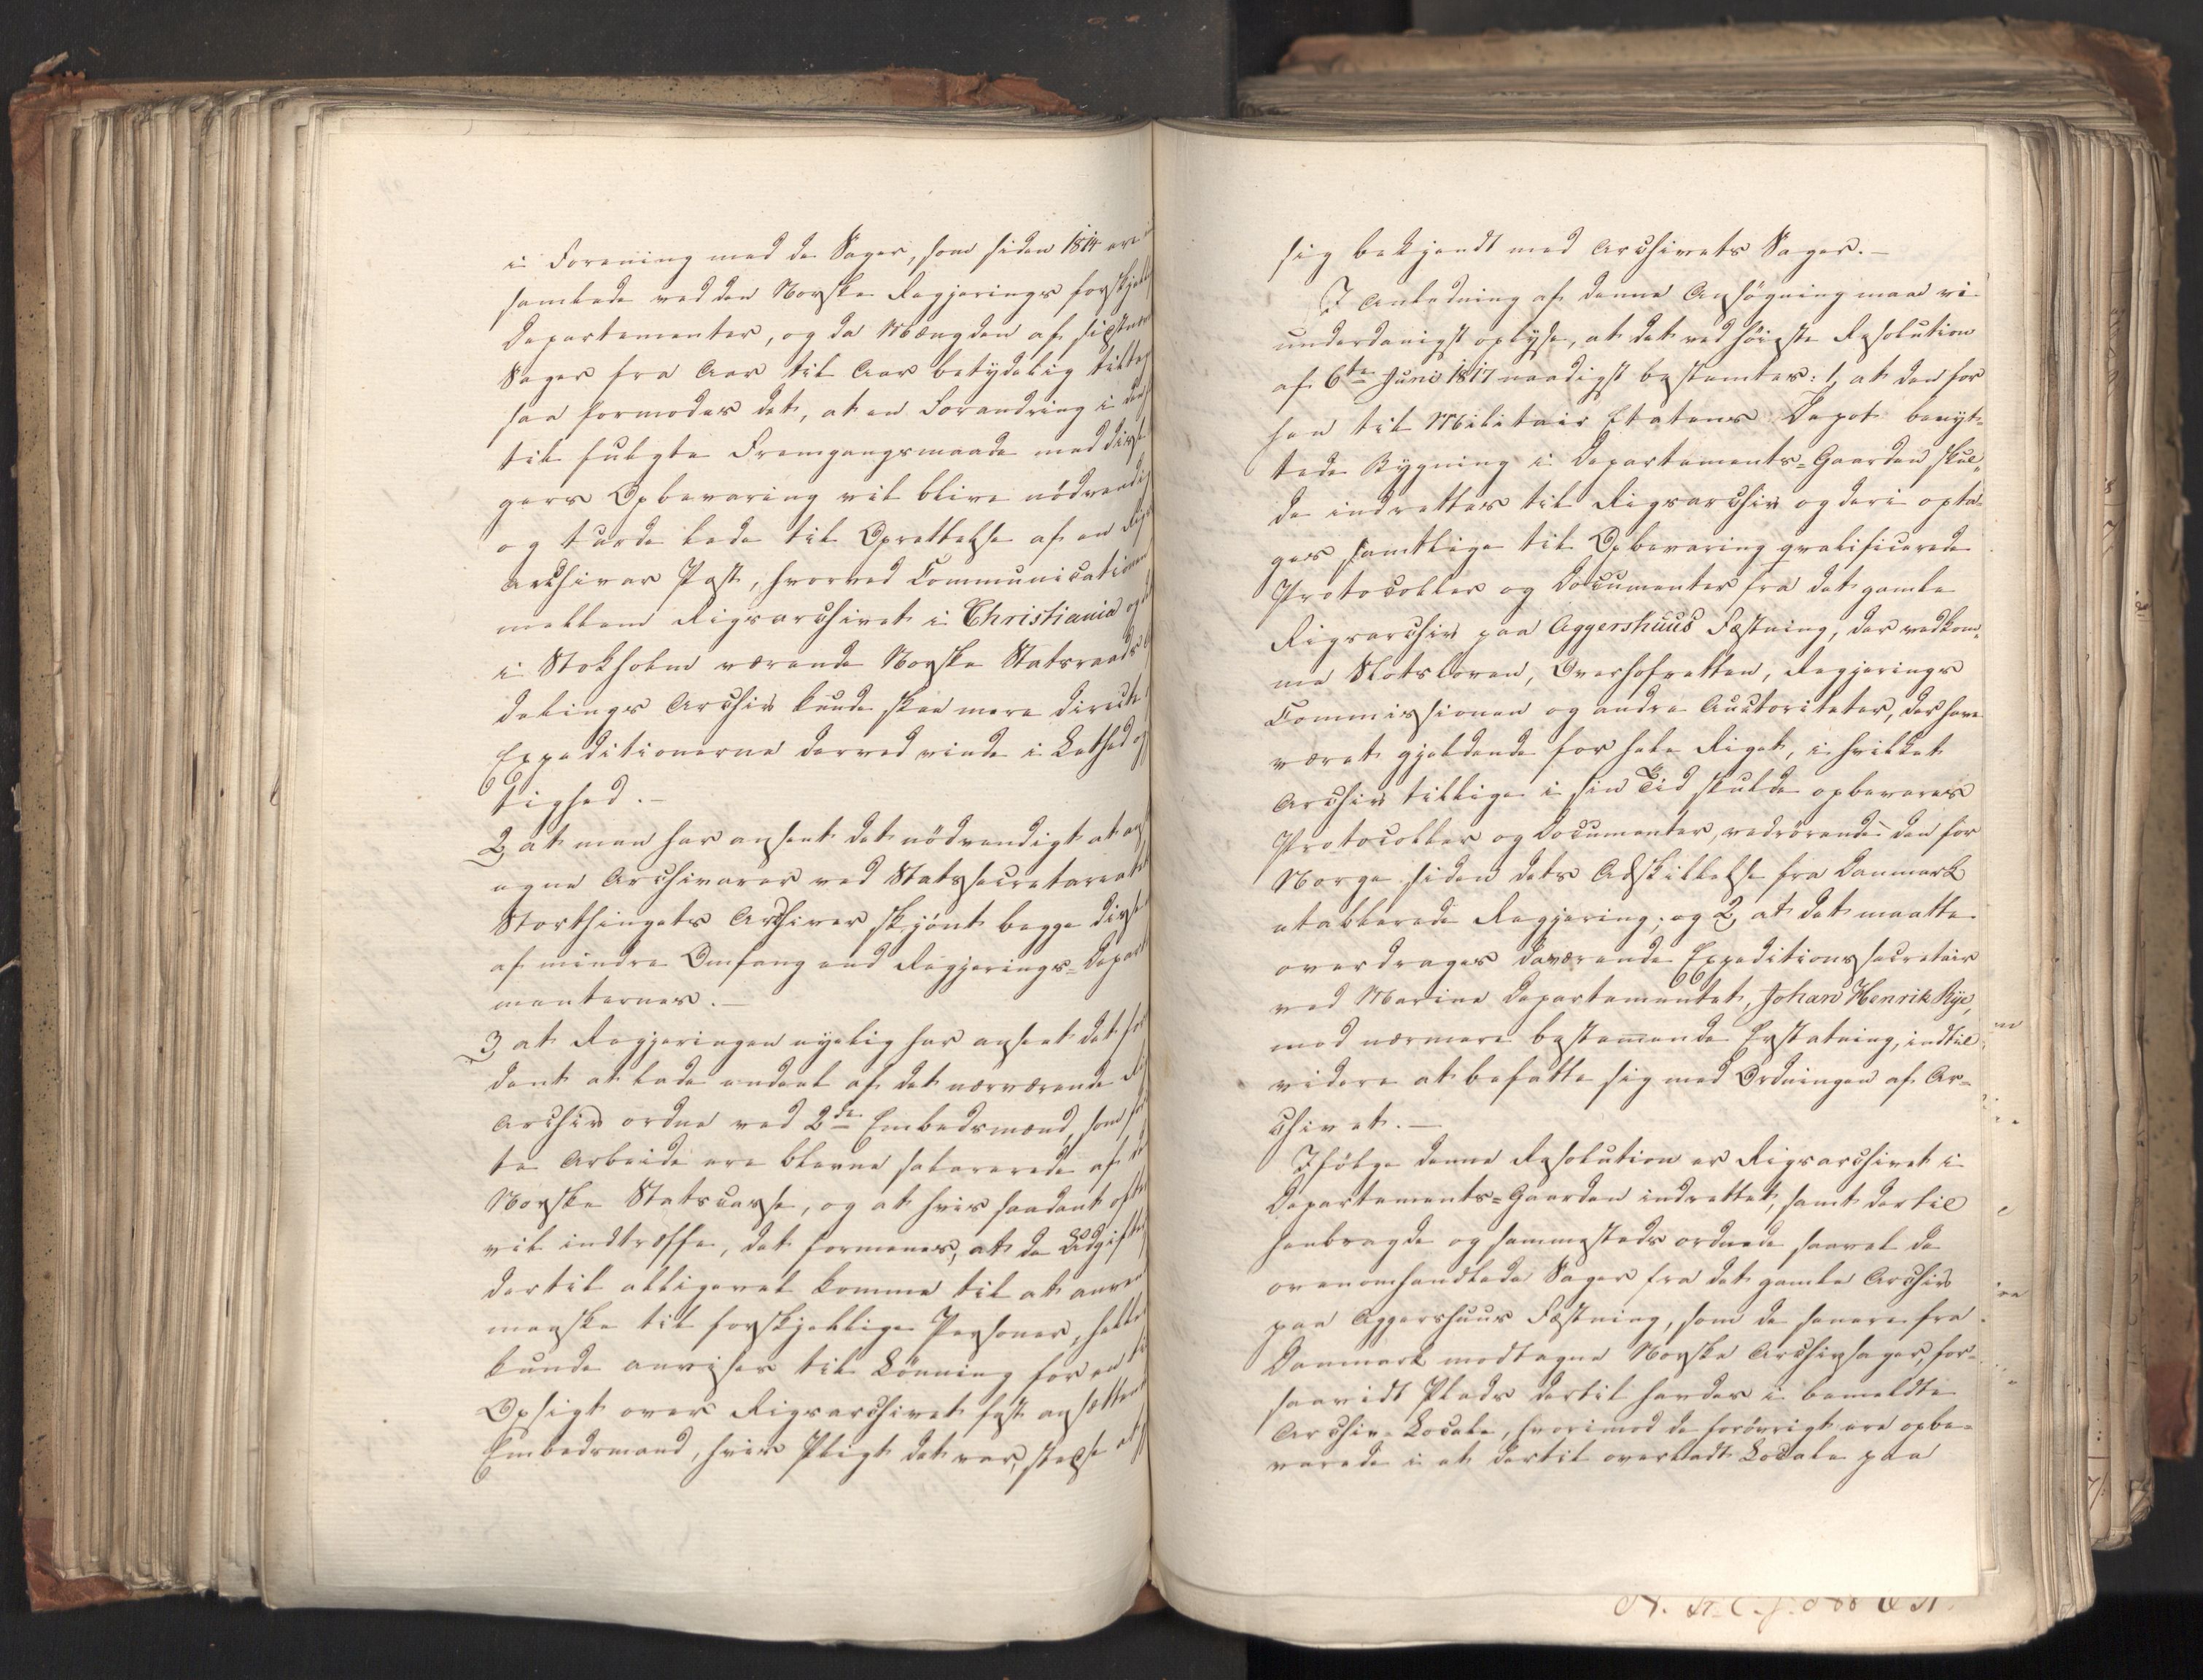 i Forening med de Sager, som siden 1814 ere
samlede ved den Norske Regjerings forskjell
Departementer, og da Mængden af sidstnæv
Sager fra Aar til Aar betydelig tiltag
saa formodes det, at en Forandring i den h
til fulgte Fremgangsmaade med disse
gers Opbevaring vil blive nödvendig
og turde lede til Oprettelse af en Rigs
archivar Post, hvorved Communicationen
mellem Rigsarchivet i Christiania og det
i Stokholm værende Norske Statsraads A
delings Archiv kunde skee mere directe
Expeditionerne derved vinde i Lethed og
tighed. –
2, at man har anseet det nödvendigt at ans
egne Archivarer ved Statssecretariatet
Storthingets Archiver skjönt begge disse
af mindre Omfang end Regjerings-Depart
menternes. –
3, at Regjeringen nyelig har anseet det for
dent at lade endeel af det nærværende Rigs
Archiv ordne ved 2de Embedsmænd, som for
te Arbeide ere blevne salarerede af den
Norske Statscasse, og at hvis saadant ofte
vil indtræffe, det formenes, at de Udgifter
dertil alligevel komme til at anven
maaske til forskjellige Personer, heller
kunde anvises til Lönning for en
Opsigt over Rigsarchivet fast ansættende
Embedsmand, hvis Pligt det var, stedse at
sig bekjendt med Archivets Sager. –
I Anledning af denne Ansögning maae vi
underdanigst oplyse, at det ved höieste Resolution
af 6te Juni 1817 naadigst bestemtes: 1, at den for
hen til Militair Etatens Depot benyt-
tede Bygning i Departements-Gaarden skul-
de indrettes til Rigsarchiv og deri opta-
ges samtlige til Opbevaring qvalificerede
Protocoller og Documenter fra det gamle
Rigsarchiv paa Aggershuus Fæstning, der vedkom-
me Slotsloven, Overhofretten, Regjerings
Commissionen og andre Auctoriteter, der have
været gjeldende for hele Riget, i hvilket
Archiv tillige i sin Tid skulde opbevares
Protocoller og Documenter, vedrörende den for
Norge siden dets Adskillelse fra Danmark
etablerede Regjering; og 2, at det maatte
overdrages daværende Expeditionssecretair
ved Marine Departementet, Johan Henrik Rye,
mod nærmere bestemmende Erstatning, indtil
videre at befatte sig med Ordningen af Ar-
chivet. –
Ifölge denne Resolution er Rigsarchivet i
Departements-Gaarden indrettet, samt dertil
henbragde og sammesteds ordnede saavel de
ovenomhandlede Sager fra det gamle Archiv
paa Aggershuus Fæstning, som de senere fra
Danmark modtagne Norske Archivsager, for-
saavidt Plads dertil havdes i bemeldte
Archiv-Locale, hvorimod de forövrigt ere opbe-
varede i et dertil overladt Locale paa